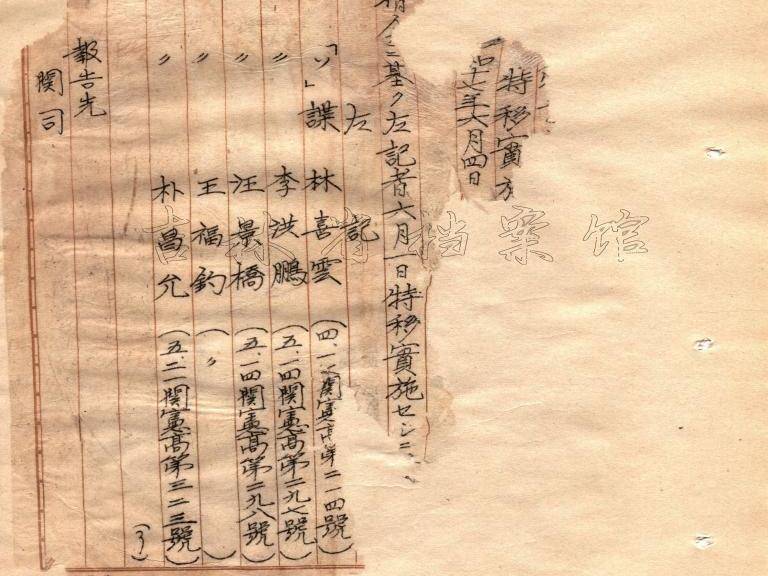 特移實
十七年六月四日
基ク左記者六月一日特移實施セシニ
左記
「ソ」諜 林喜雲 (四、一 關憲高第二一四號)
〃 李洪鵬 (五、一四關憲高第二九七號)
〃 汪景橋 (五、一四關憲高第二九八號)
〃 王福鈞 (〃)
〃 朴昌允 (五、二一關憲高第三二三號)
報告先
関司
吉林省档案馆